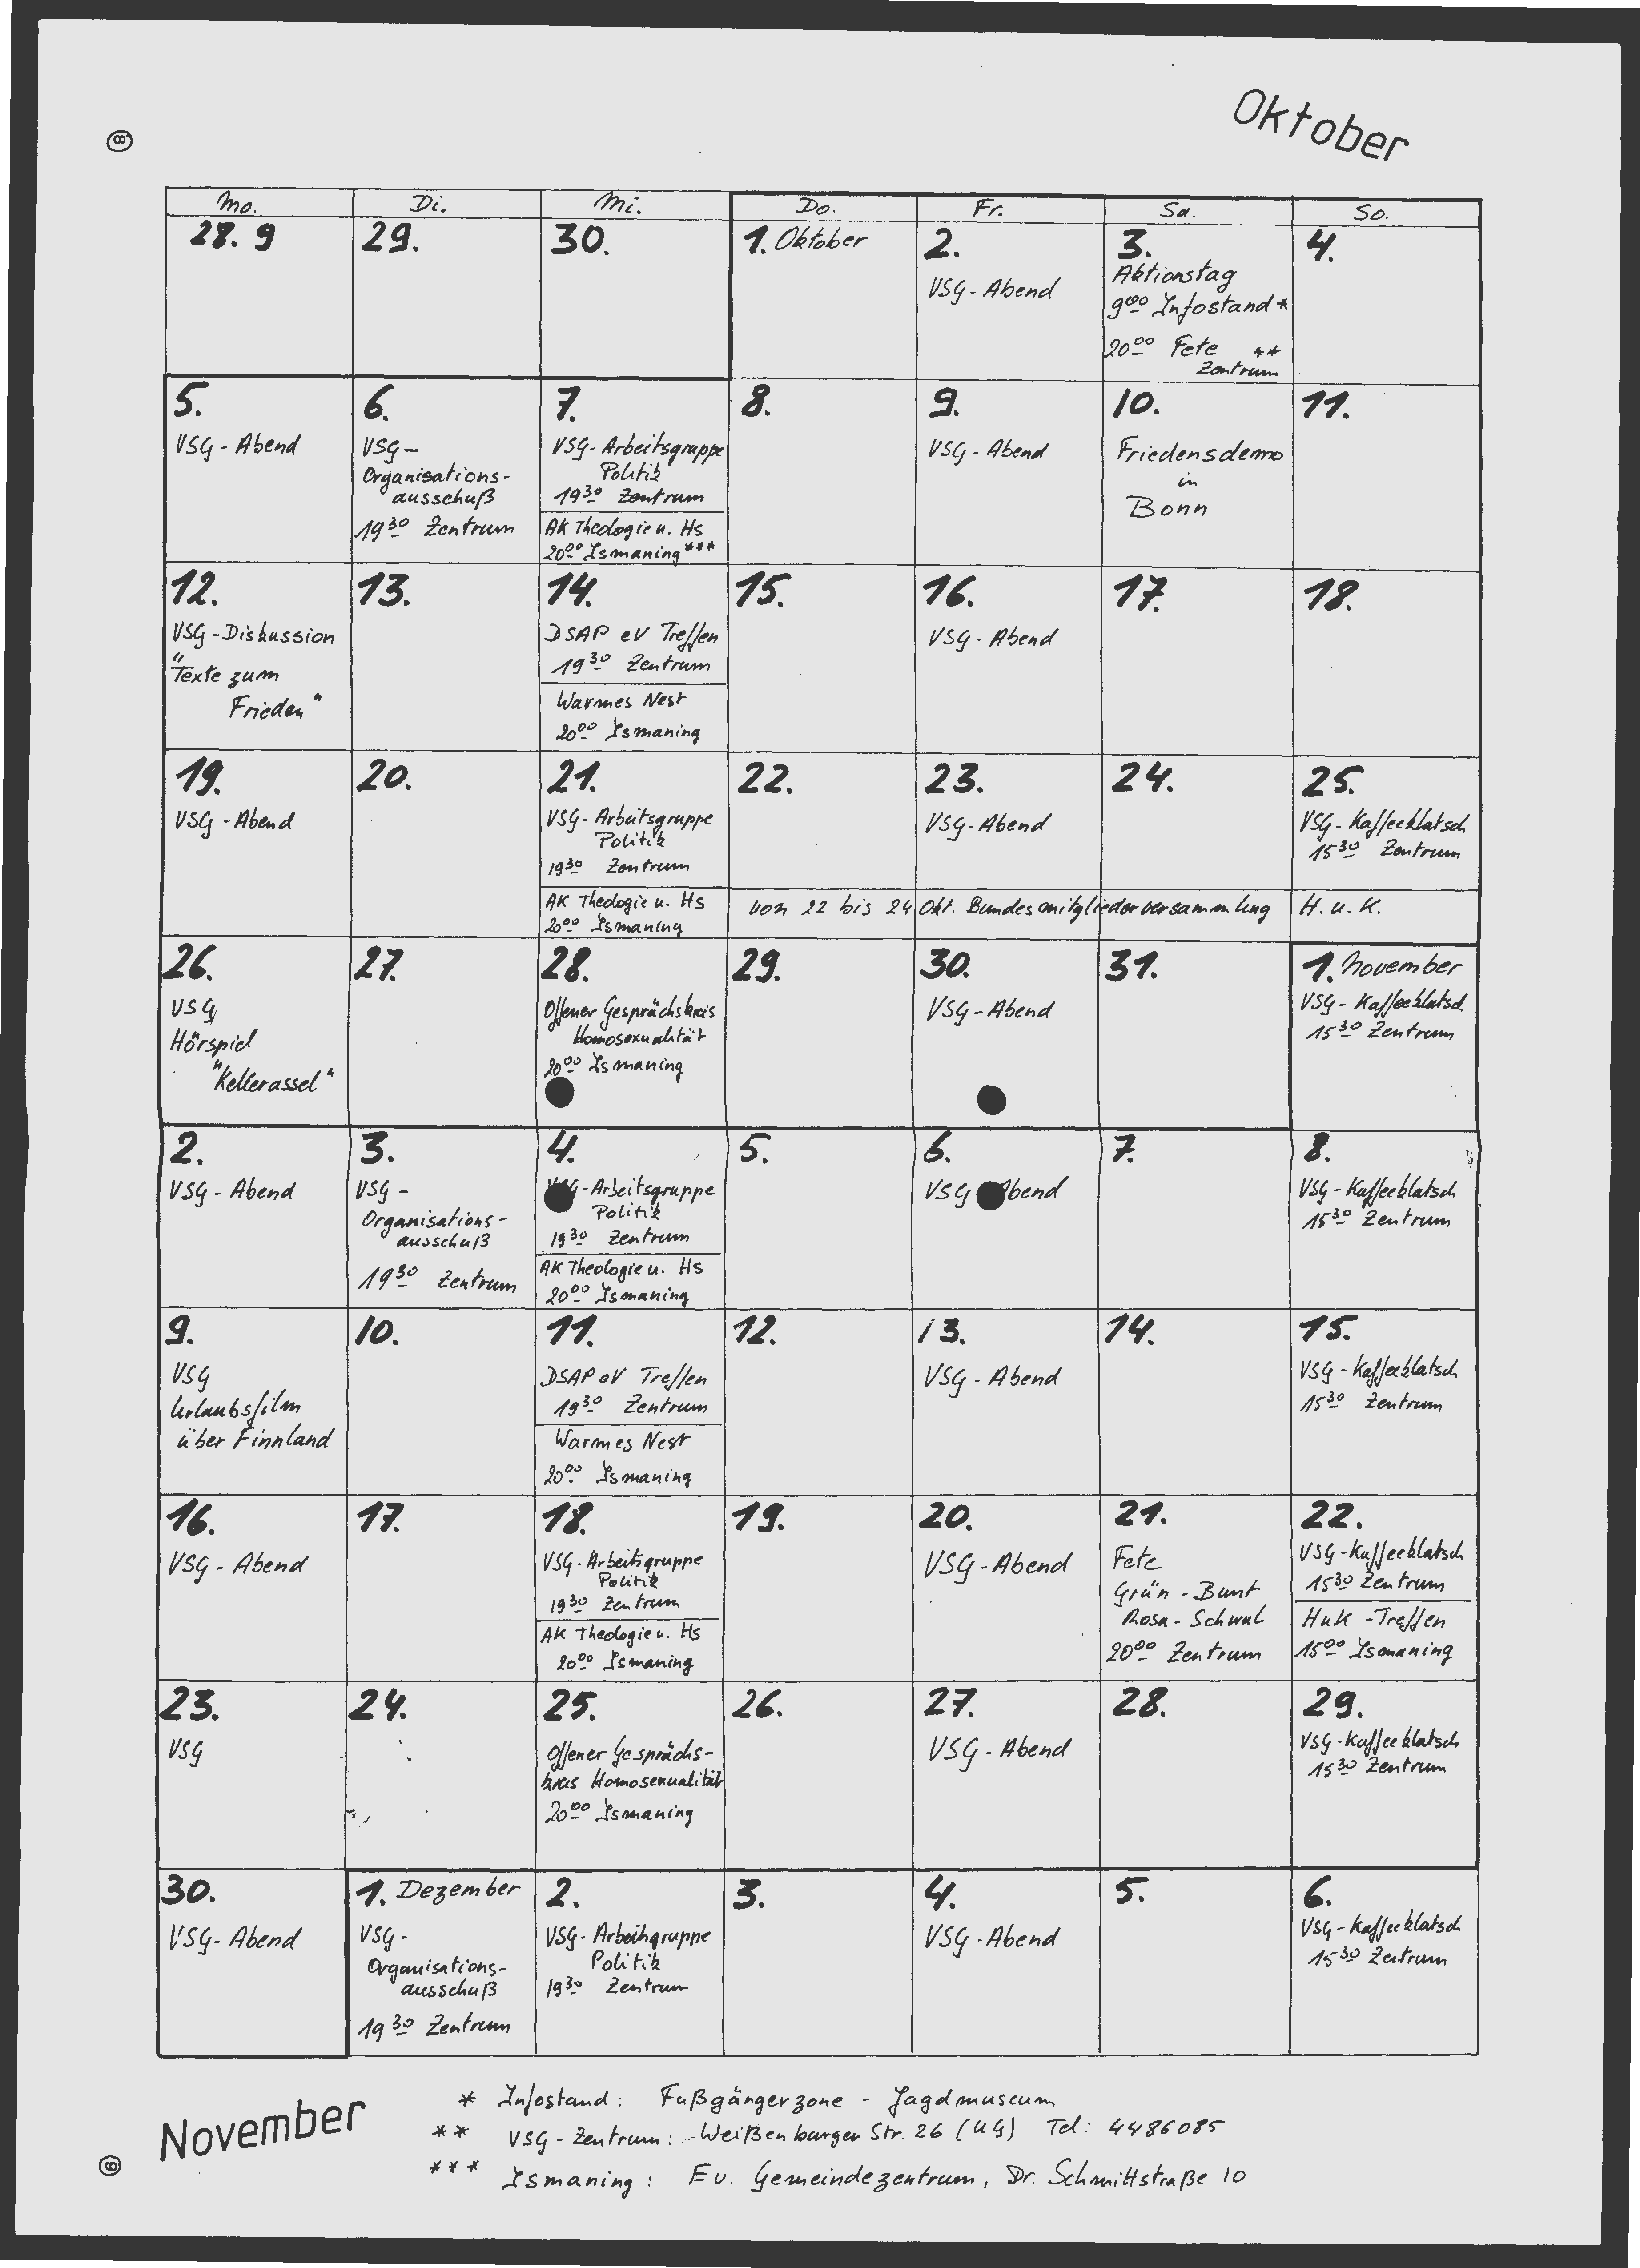 Oktober
8
Mo. Di. Mi. Do. Fr. Sa. So.
28. 9
29.
30.
1. Oktober
2.
VSG - Abend
3.
Aktionstag
9°° Infostand *
20°° Fete **
Zentrum
4.
5.
VSG - Abend
6.
VSG -
Organisations-
ausschuß
19 30 Zentrum
7.
VSG - Arbeitsgruppe
Politik
19 30 Zentrum
AK Theologie u. Hs
20°° Ismaning ***
8.
9.
VSG - Abend
10.
Friedensdemo
in
Bonn
11.
12.
VSG - Diskussion
"Texte zum
Frieden"
13.
14.
DSAP eV Treffen
19 30 Zentrum
Warmes Nest
20°° Ismaning
15.
16.
VSG - Abend
17.
18.
19.
VSG - Abend
20.
21.
VSG - Arbeitsgruppe
Politik
19 30 Zentrum
AK Theologie u. Hs
20°° Ismaning
22.
23.
VSG - Abend
24.
25.
VSG - Kaffeeklatsch
15 30 Zentrum
von 22 bis 24 Okt. Bundesmitgliederversammlung H. u. K.
26.
VSG
Hörspiel
"Kellerassel"
27.
28.
Offener Gesprächskreis
Homosexualität
20°° Ismaning
29.
30.
VSG - Abend
31.
1. November
VSG - Kaffeeklatsch
15 30 Zentrum
2.
VSG - Abend
3.
VSG -
Organisations-
ausschuß
19 30 Zentrum
4.
VSG - Arbeitsgruppe
Politik
19 30 Zentrum
AK Theologie u. Hs
20°° Ismaning
5.
6.
VSG Abend
7.
8.
VSG - Kaffeeklatsch
15 30 Zentrum
9.
VSG
Urlaubsfilm
über Finnland
10.
11.
DSAP eV Treffen
19 30 Zentrum
Warmes Nest
20°° Ismaning
12.
13.
VSG - Abend
14.
15.
VSG - Kaffeeklatsch
15 30 Zentrum
16.
VSG - Abend
17.
18.
VSG - Arbeitsgruppe
Politik
19 30 Zentrum
AK Theologie u. Hs
20°° Ismaning
19.
20.
VSG - Abend
21.
Fete
Grün - Bunt
Rosa - Schwul
20°° Zentrum
22.
VSG - Kaffeeklatsch
15 30 Zentrum
HuK - Treffen
15°° Ismaning
23.
VSG
24.
25.
Offener Gesprächs-
kreis Homosexualität
20°° Ismaning
26.
27.
VSG - Abend
28.
29.
VSG - Kaffeeklatsch
15 30 Zentrum
30.
VSG - Abend
1. Dezember
VSG -
Organisations-
ausschuß
19 30 Zentrum
2.
VSG - Arbeitsgruppe
Politik
19 30 Zentrum
3.
4.
VSG - Abend
5.
6.
VSG - Kaffeeklatsch
15 30 Zentrum
November
* Infostand: Fußgängerzone - Jagdmuseum
** VSG - Zentrum: Weißenburger Str. 26 (UG) Tel: 4486085
*** Ismaning: Ev. Gemeindezentrum, Dr. Schmittstraße 10